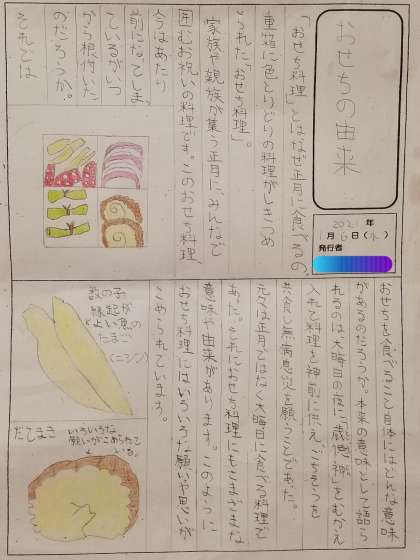 おせちの由来
2021年
1月6日(水)
発行者
「おせち料理」とはなぜ正月に食べるの
重箱に色とりどりの料理がしきつめ
られた「おせち料理」。
家族や親族が集う正月に、みんなで
囲むお祝いの料理です。このおせち料理、
今はあたり
前になってしま
ているがいつ
から根付いた
のだろうか。
それでは
おせちを食べること自体にはどんな意味
があるのだろうか。本来の意味として語ら
れるのは大晦日の夜に「歳徳神」をむかえ
入れて料理を神前に供え、ごちそうを
共食し無病息災を願うことであった。
元々は正月ではなく大晦日に食べる料理で
あった。それにおせち料理にもさまざまな
意味や由来があります。このように
おせち料理にはいろいろな願いや思いが
こめられています。
数の子
縁起が
よい魚の
たまご
(ニシン)
だてまき
いろいろな
願いがこめられて
いる。